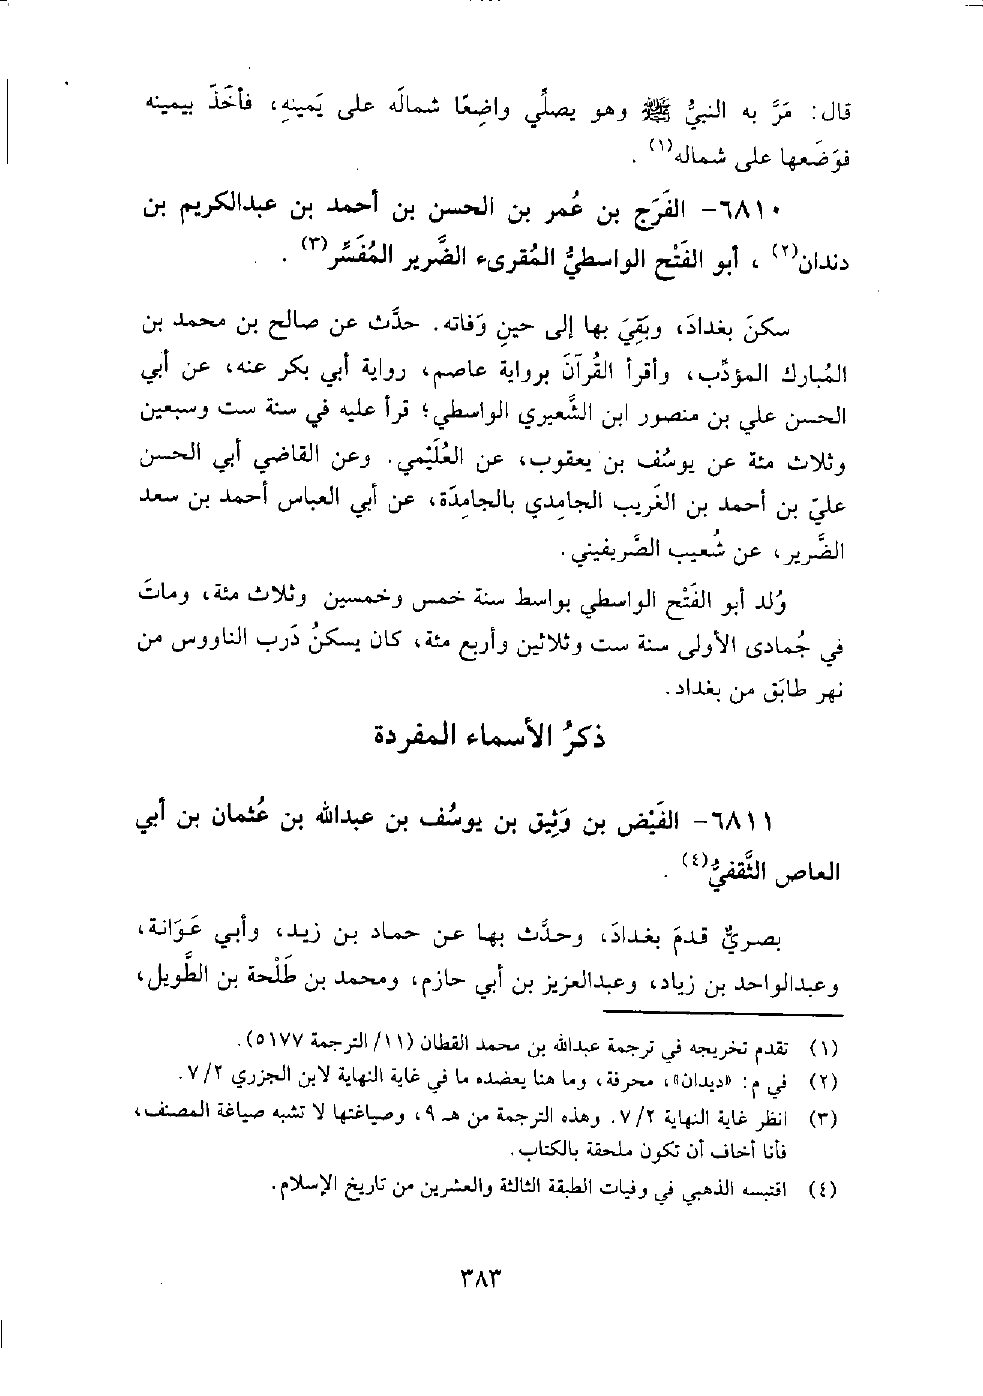 قال: مَرَّ به النبيُّ ﷺ وهو يصلِّي واضِعًا شمالَه على يَمينهِ، فأخَذَ بيمينه
فوَضَعها على شماله(١).
٦٨١٠- الفَرَج بن عُمر بن الحسن بن أحمد بن عبدالكريم بن
دندان(٢)، أبو الفَتْح الواسطيُّ المُقرىء الضَّرير المُفَسِّر(٣).
سكنَ بغدادَ، وبقِيَ بها إلى حينِ وَفاته. حدَّث عن صالح بن محمد بن
المُبارك المؤدِّب، وأقرأ القُرآنَ برواية عاصم، رواية أبي بكر عنه، عن أبي
الحسن علي بن منصور ابن الشَّعيري الواسطي؛ قرأ عليه في سنة ست وسبعين
وثلاث مئة عن يوسُف بن يعقوب، عن العُلَيْمي. وعن القاضي أبي الحسن
عليّ بن أحمد بن الغَريب الجامِدي بالجامِدَة، عن أبي العباس أحمد بن سعد
الضَّرير، عن شُعيب الصَّريفيني.
وُلد أبو الفَتْح الواسطي بواسط سنة خمس وخمسين وثلاث مئة، وماتَ
في جُمادى الأولى سنة ست وثلاثين وأربع مئة، كان يسكنُ دَرب الناووس من
نهر طابَق من بغداد.
ذكرُ الأسماء المفردة
٦٨١١- الفَيْض بن وَثِيق بن يوسُف بن عبدالله بن عُثمان بن أبي
العاص الثَّقفيُّ(٤).
بصريٌّ قدمَ بغدادَ، وحدَّث بها عن حماد بن زيد، وأبي عَوَانة،
وعبدالواحد بن زياد، وعبدالعزيز بن أبي حازم، ومحمد بن طَلْحة بن الطَّويل،
(١) تقدم تخريجه في ترجمة عبدالله بن محمد القطان (١١/ الترجمة ٥١٧٧).
(٢) في م: «ديدان»، محرفة، وما هنا يعضده ما في غاية النهاية لابن الجزري ٢/ ٧.
(٣) انظر غاية النهاية ٢/ ٧. وهذه الترجمة من هـ ٩، وصياغتها لا تشبه صياغة المصنف،
فأنا أخاف أن تكون ملحقة بالكتاب.
(٤) اقتبسه الذهبي في وفيات الطبقة الثالثة والعشرين من تاريخ الإسلام.
٣٨٣